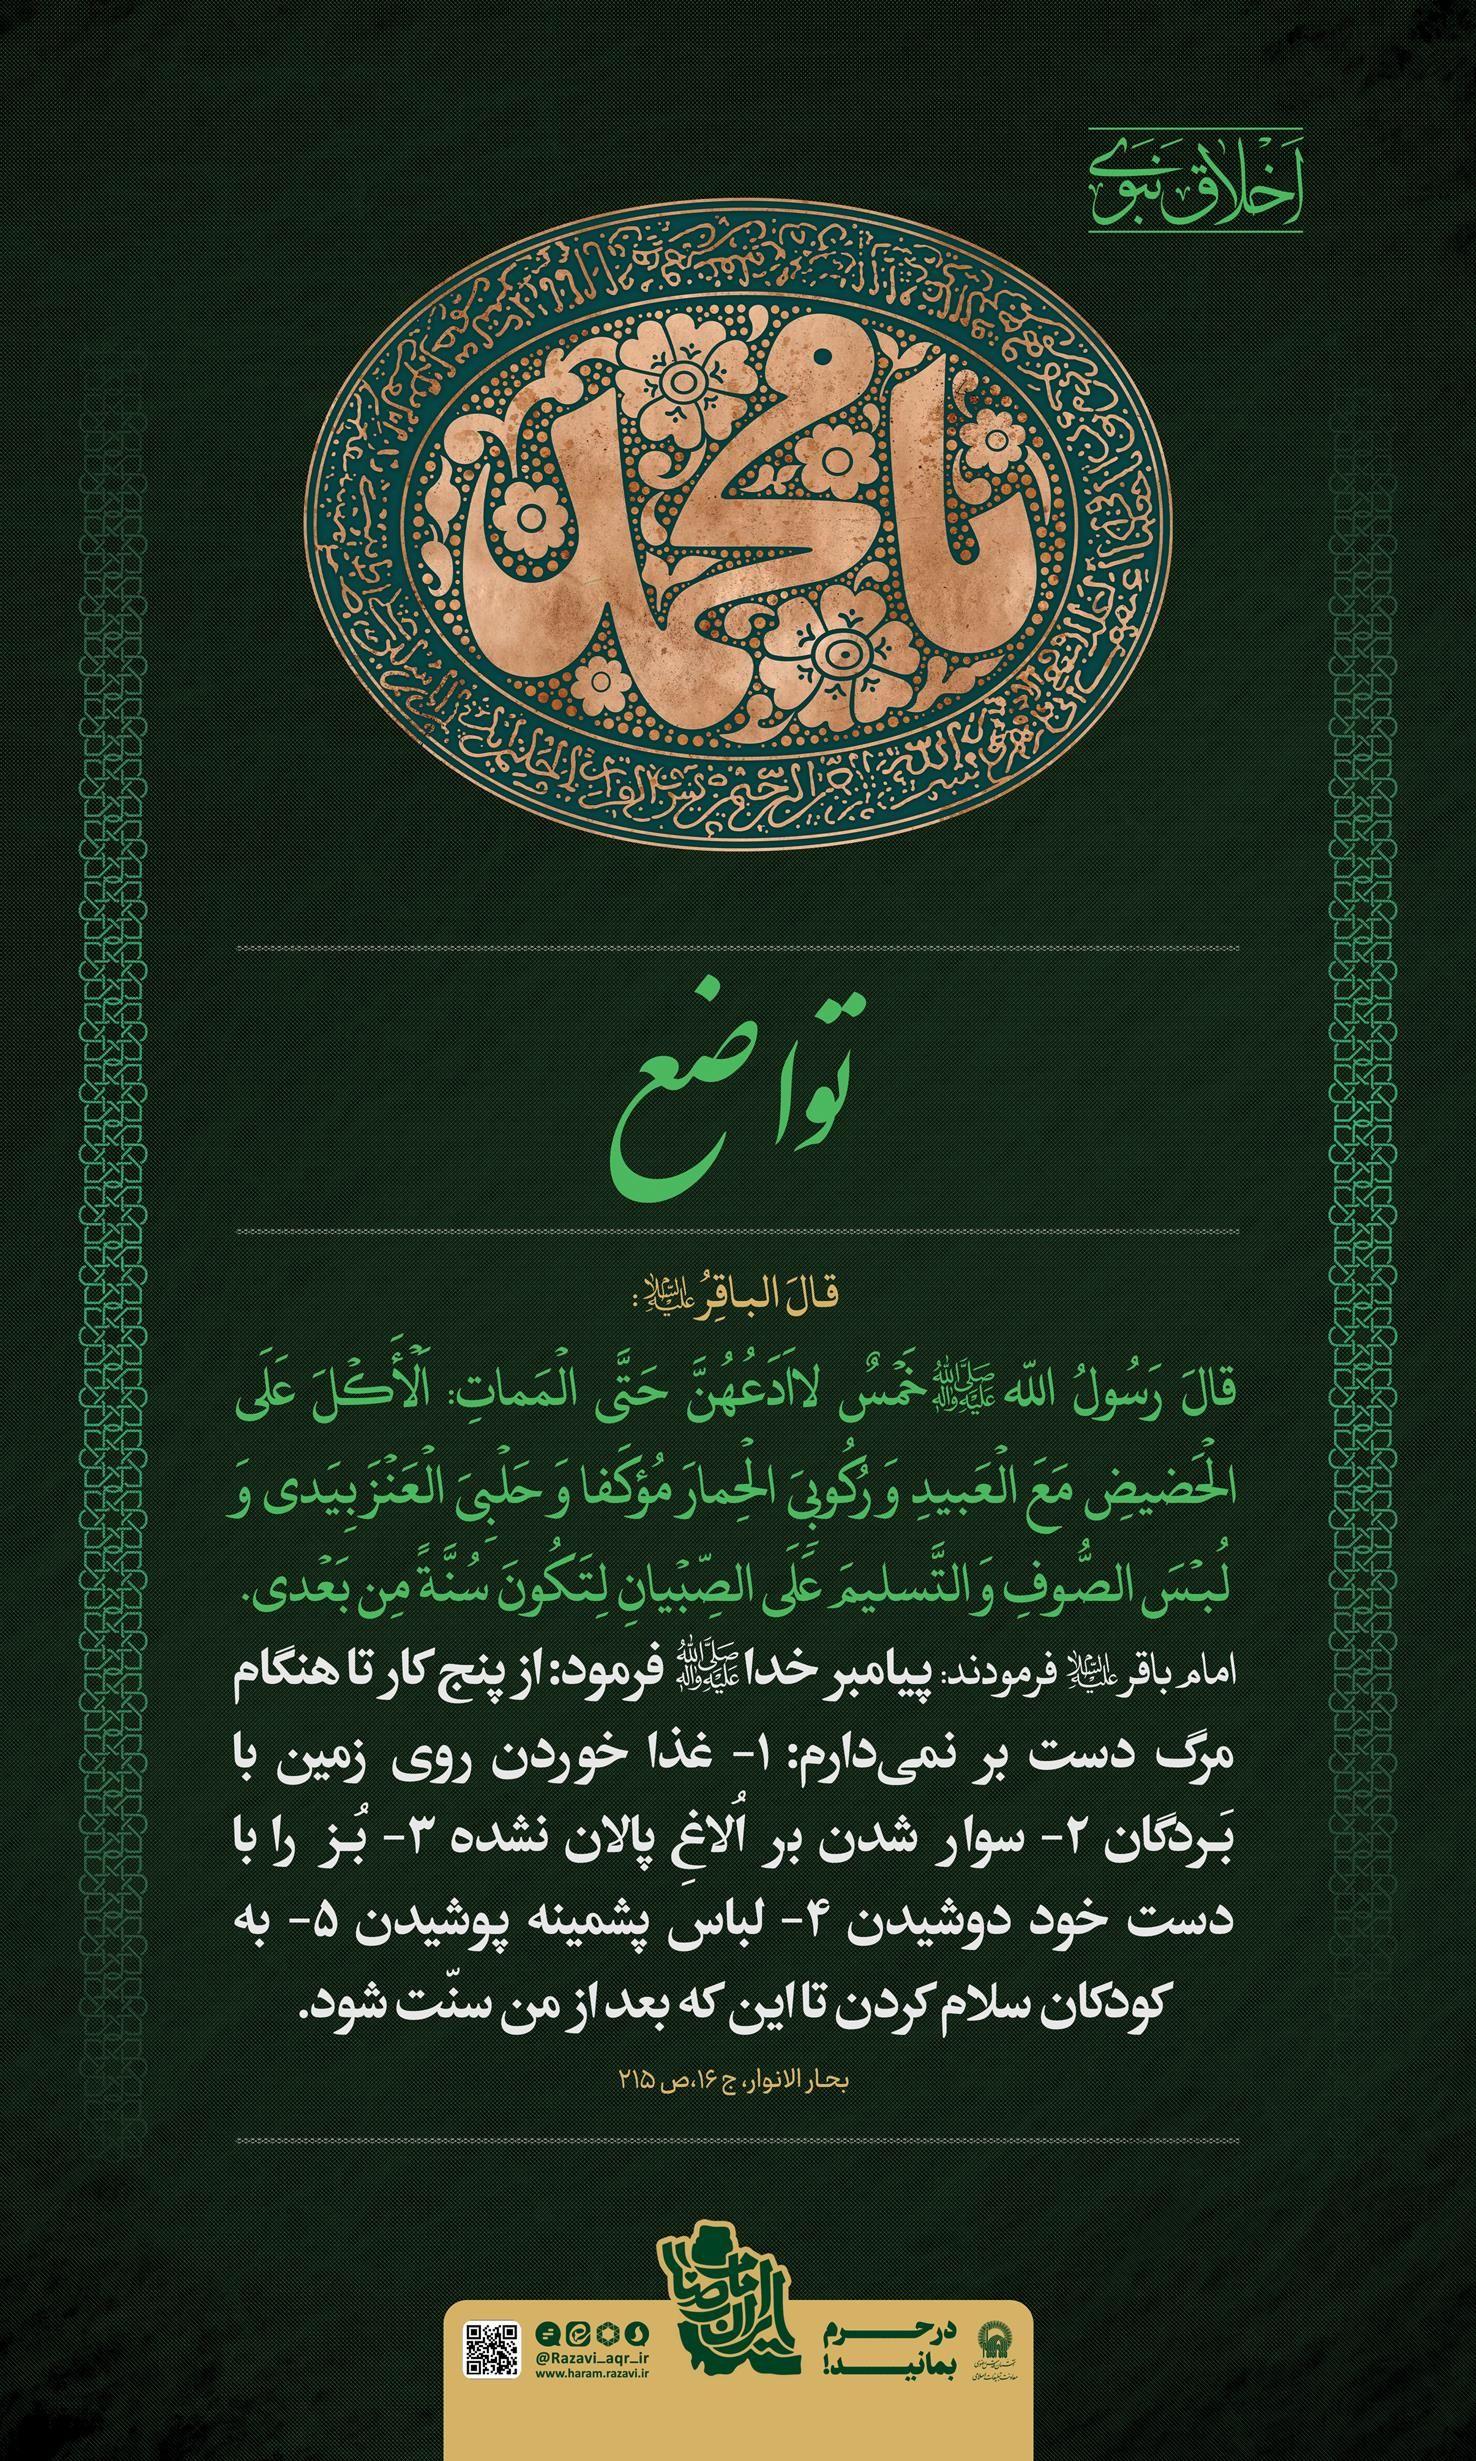 اخلاق نبوی
یا محمد
تواضع
قالَ الباقِرُ علیه‌السلام:
قالَ رَسُولُ اللّه صَلَّى اللهُ عَلَيْهِ وَآلِه خَمْسٌ لااَدَعُهُنَّ حَتَّى الْمَماتِ: اَلْأَكْلَ عَلَى
الْحَضيضِ مَعَ الْعَبيدِ وَ رُكُوبِىَ الْحِمارَ مُؤكَفا وَ حَلْبِىَ الْعَنْزَ بِيَدى وَ
لُبْسَ الصُّوفِ وَ التَّسليمَ عَلَى الصِّبْيانِ لِتَكُونَ سُنَّةً مِن بَعْدى.
امام باقر علیه‌السلام فرمودند: پیامبر خدا صَلَّى اللهُ عَلَيْهِ وَآلِه فرمود: از پنج کار تا هنگام
مرگ دست بر نمی‌دارم: ۱- غذا خوردن روی زمین با
بَردگان ۲- سوار شدن بر اُلاغِ پالان نشده ۳- بُز را با
دست خود دوشیدن ۴- لباس پشمینه پوشیدن ۵- به
کودکان سلام کردن تا این که بعد از من سنّت شود.
بحار الانوار، ج ۱۶،ص ۲۱۵
ایران امام رضا
در حرم
بمانید!
@Razavi_aqr_ir
www.haram.razavi.ir